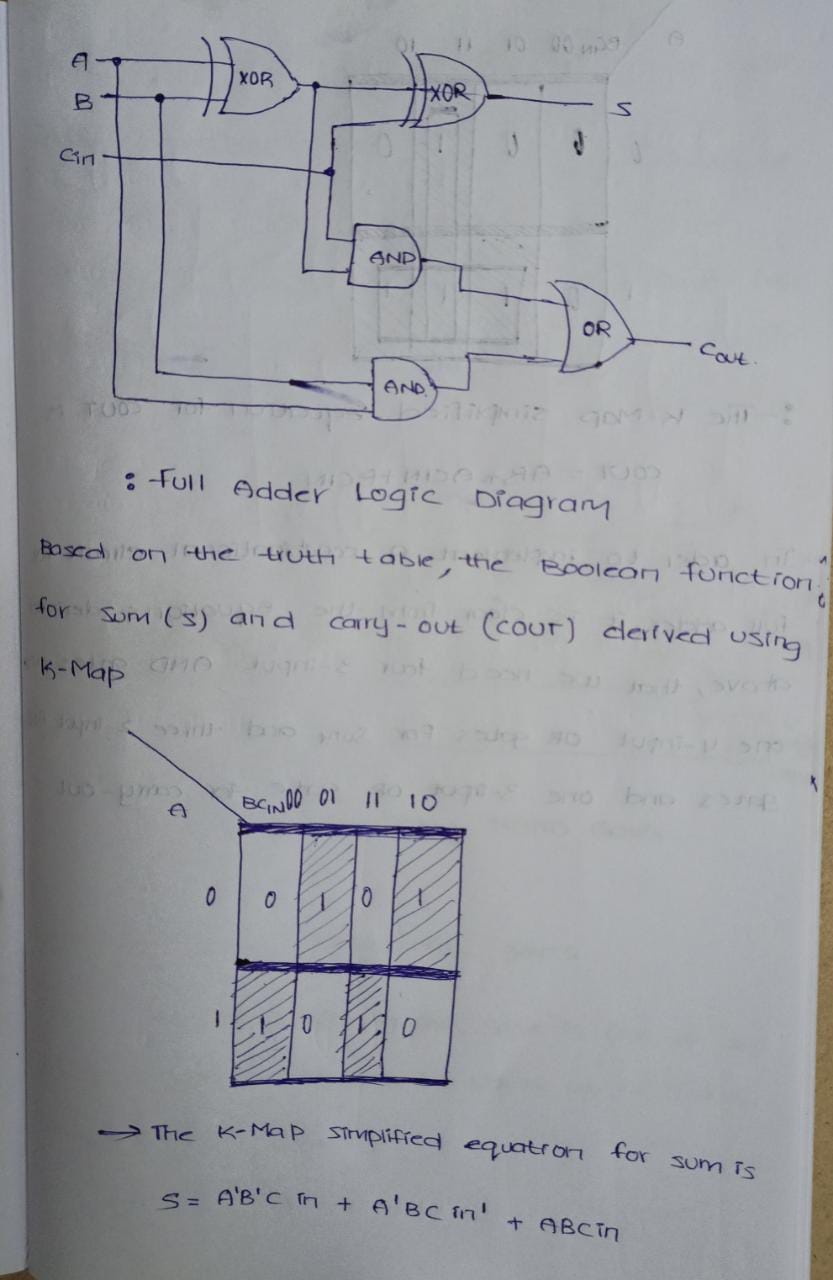 A
XOR
XOR
S
B
Cin
AND
OR
Cout.
AND
: Full Adder Logic Diagram
Based on the truth table, the Boolean function
for sum (S) and carry-out (COUT) derived using
K-Map
A BCIN 00 01 11 10
0 0 1 0 1
1 1 0 1 0
→ The K-Map simplified equation for sum is
S = A'B'C in + A'BC in' + ABCin